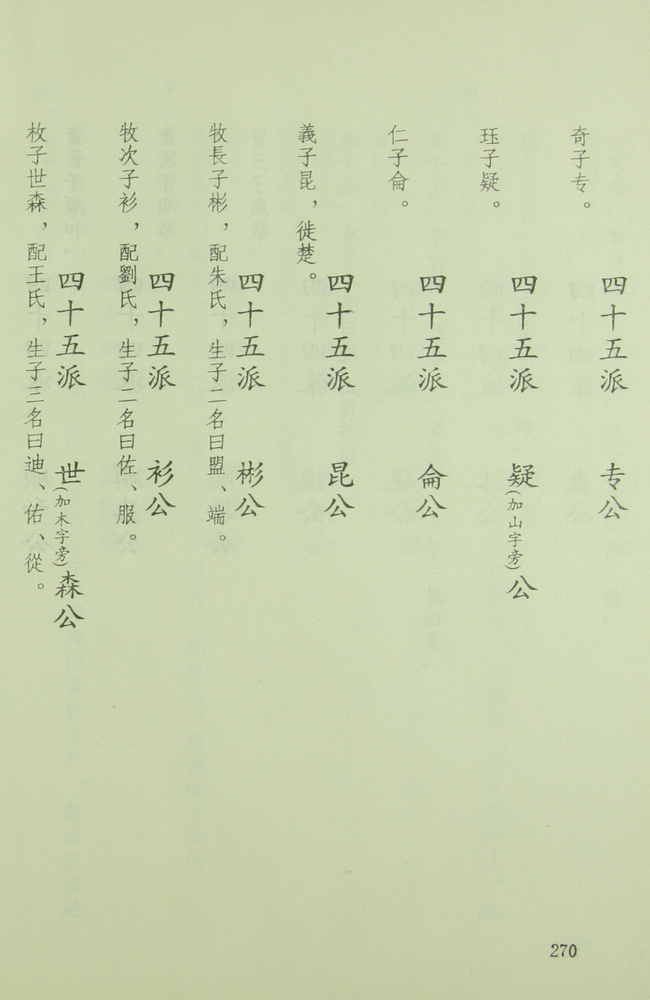 四十五派 专公
奇子专。
四十五派 疑(加山字旁)公
珏子疑。
四十五派 侖公
仁子侖。
四十五派 昆公
義子昆，徙楚。
四十五派 彬公
牧長子彬，配朱氏，生子二名曰盟、端。
四十五派 衫公
牧次子衫，配劉氏，生子二名曰佐、服。
四十五派 世(加木字旁)森公
枚子世森，配王氏，生子三名曰迪、佑、從。
270